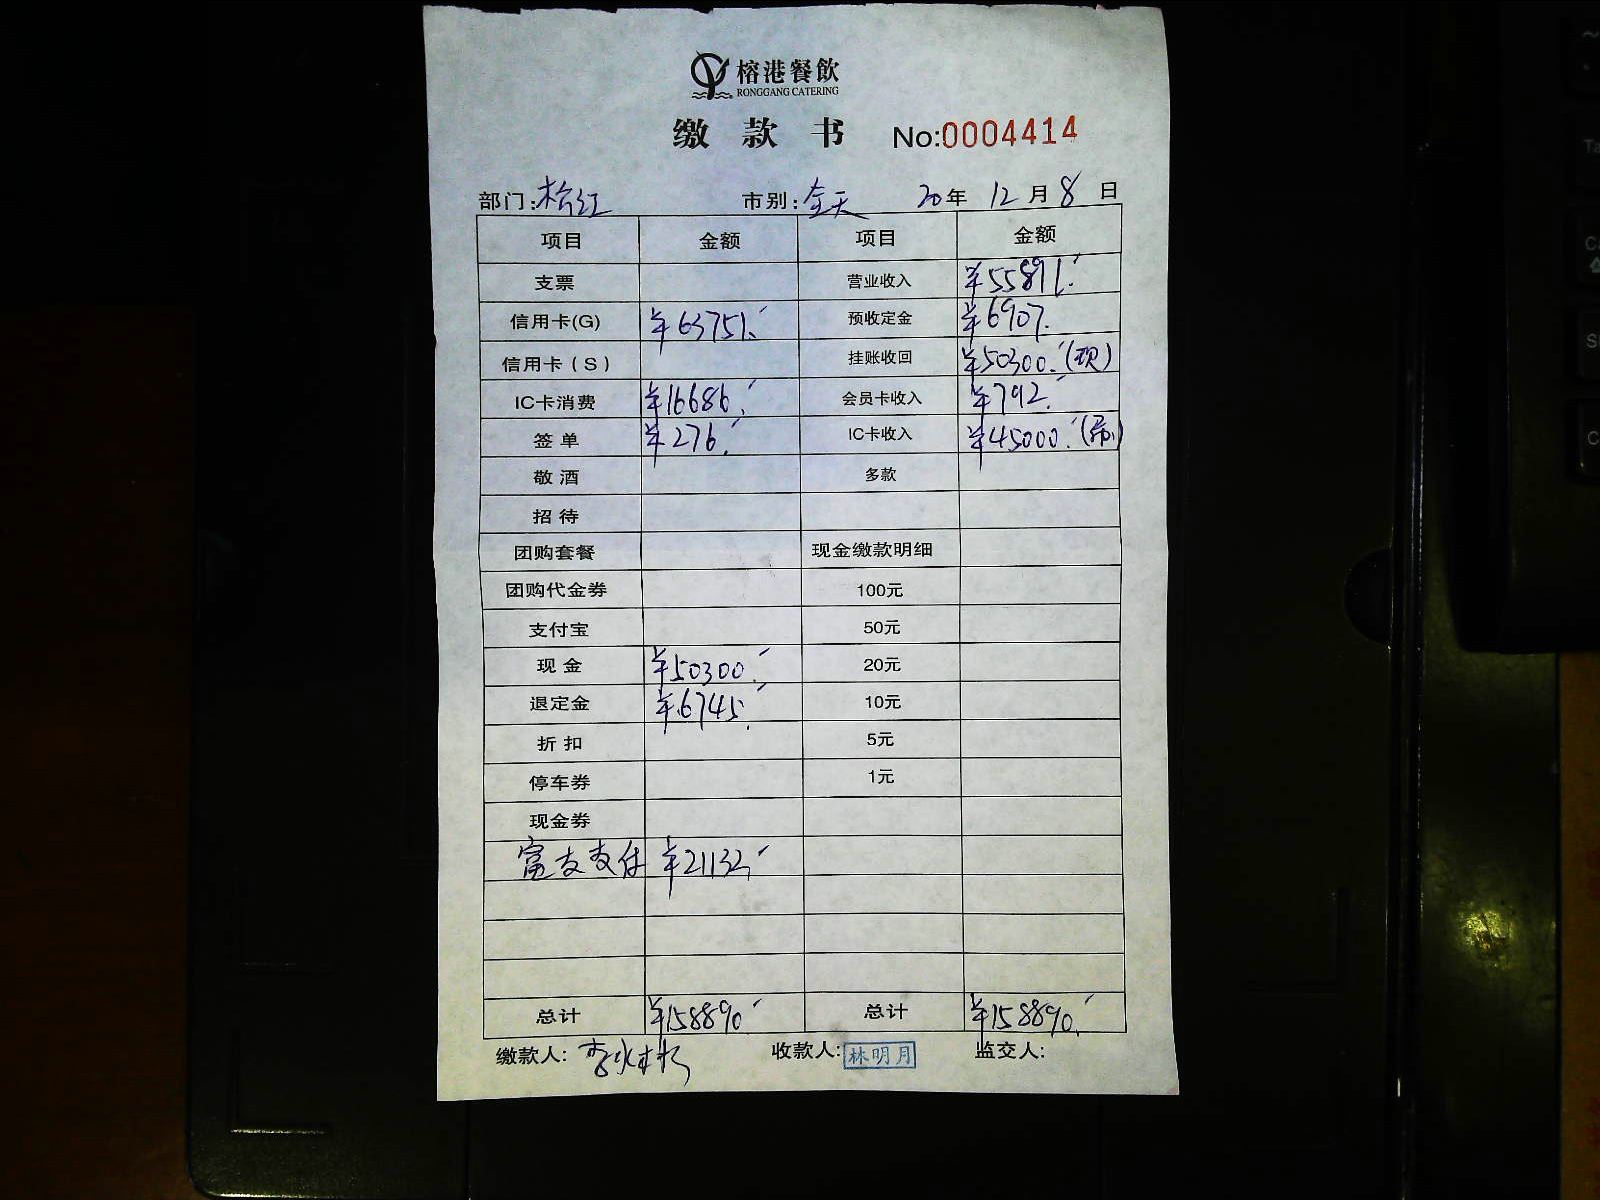 榕港餐飲
RONGGANG CATERING
缴款书 No:0004414
部门: 市别:全天 20年 12月 8日
项目 金额 项目 金额
支票 营业收入 ¥55891.
信用卡(G) ¥63751. 预收定金 ¥6907.
信用卡(S) 挂账收回 ¥50300.(现)
IC卡消费 ¥16686. 会员卡收入 ¥792.
签单 ¥276. IC卡收入 ¥45000.
敬酒 多款
招待
团购套餐 现金缴款明细
团购代金券 100元
支付宝 50元
现金 ¥50300. 20元
退定金 ¥6745. 10元
折扣 5元
停车券 1元
现金券
富友支付 ¥21132.
总计 ¥158890. 总计 ¥158890.
缴款人: 收款人:林明月 监交人: